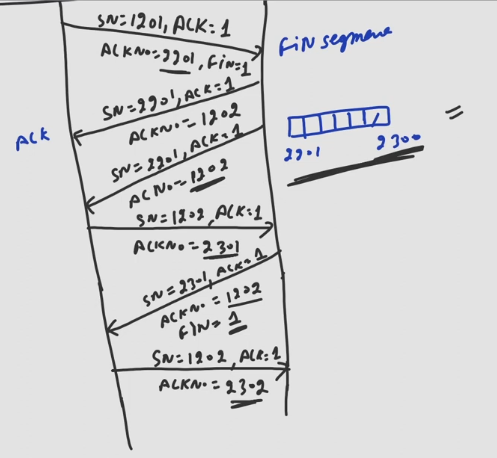 SN=1201, ACK=1
ACKNo=2201, Fin=1
FiN segment
SN=2201, ACK=1
ACKNo=1202
ACK
SN=2201, ACK=1
ACNo=1202
2201 2300
SN=1202, ACK=1
ACKNo.=2301
SN=2301, ACK=1
ACKNo=1202
FIN=1
SN=1202, ACK=1
ACKNo.=2302